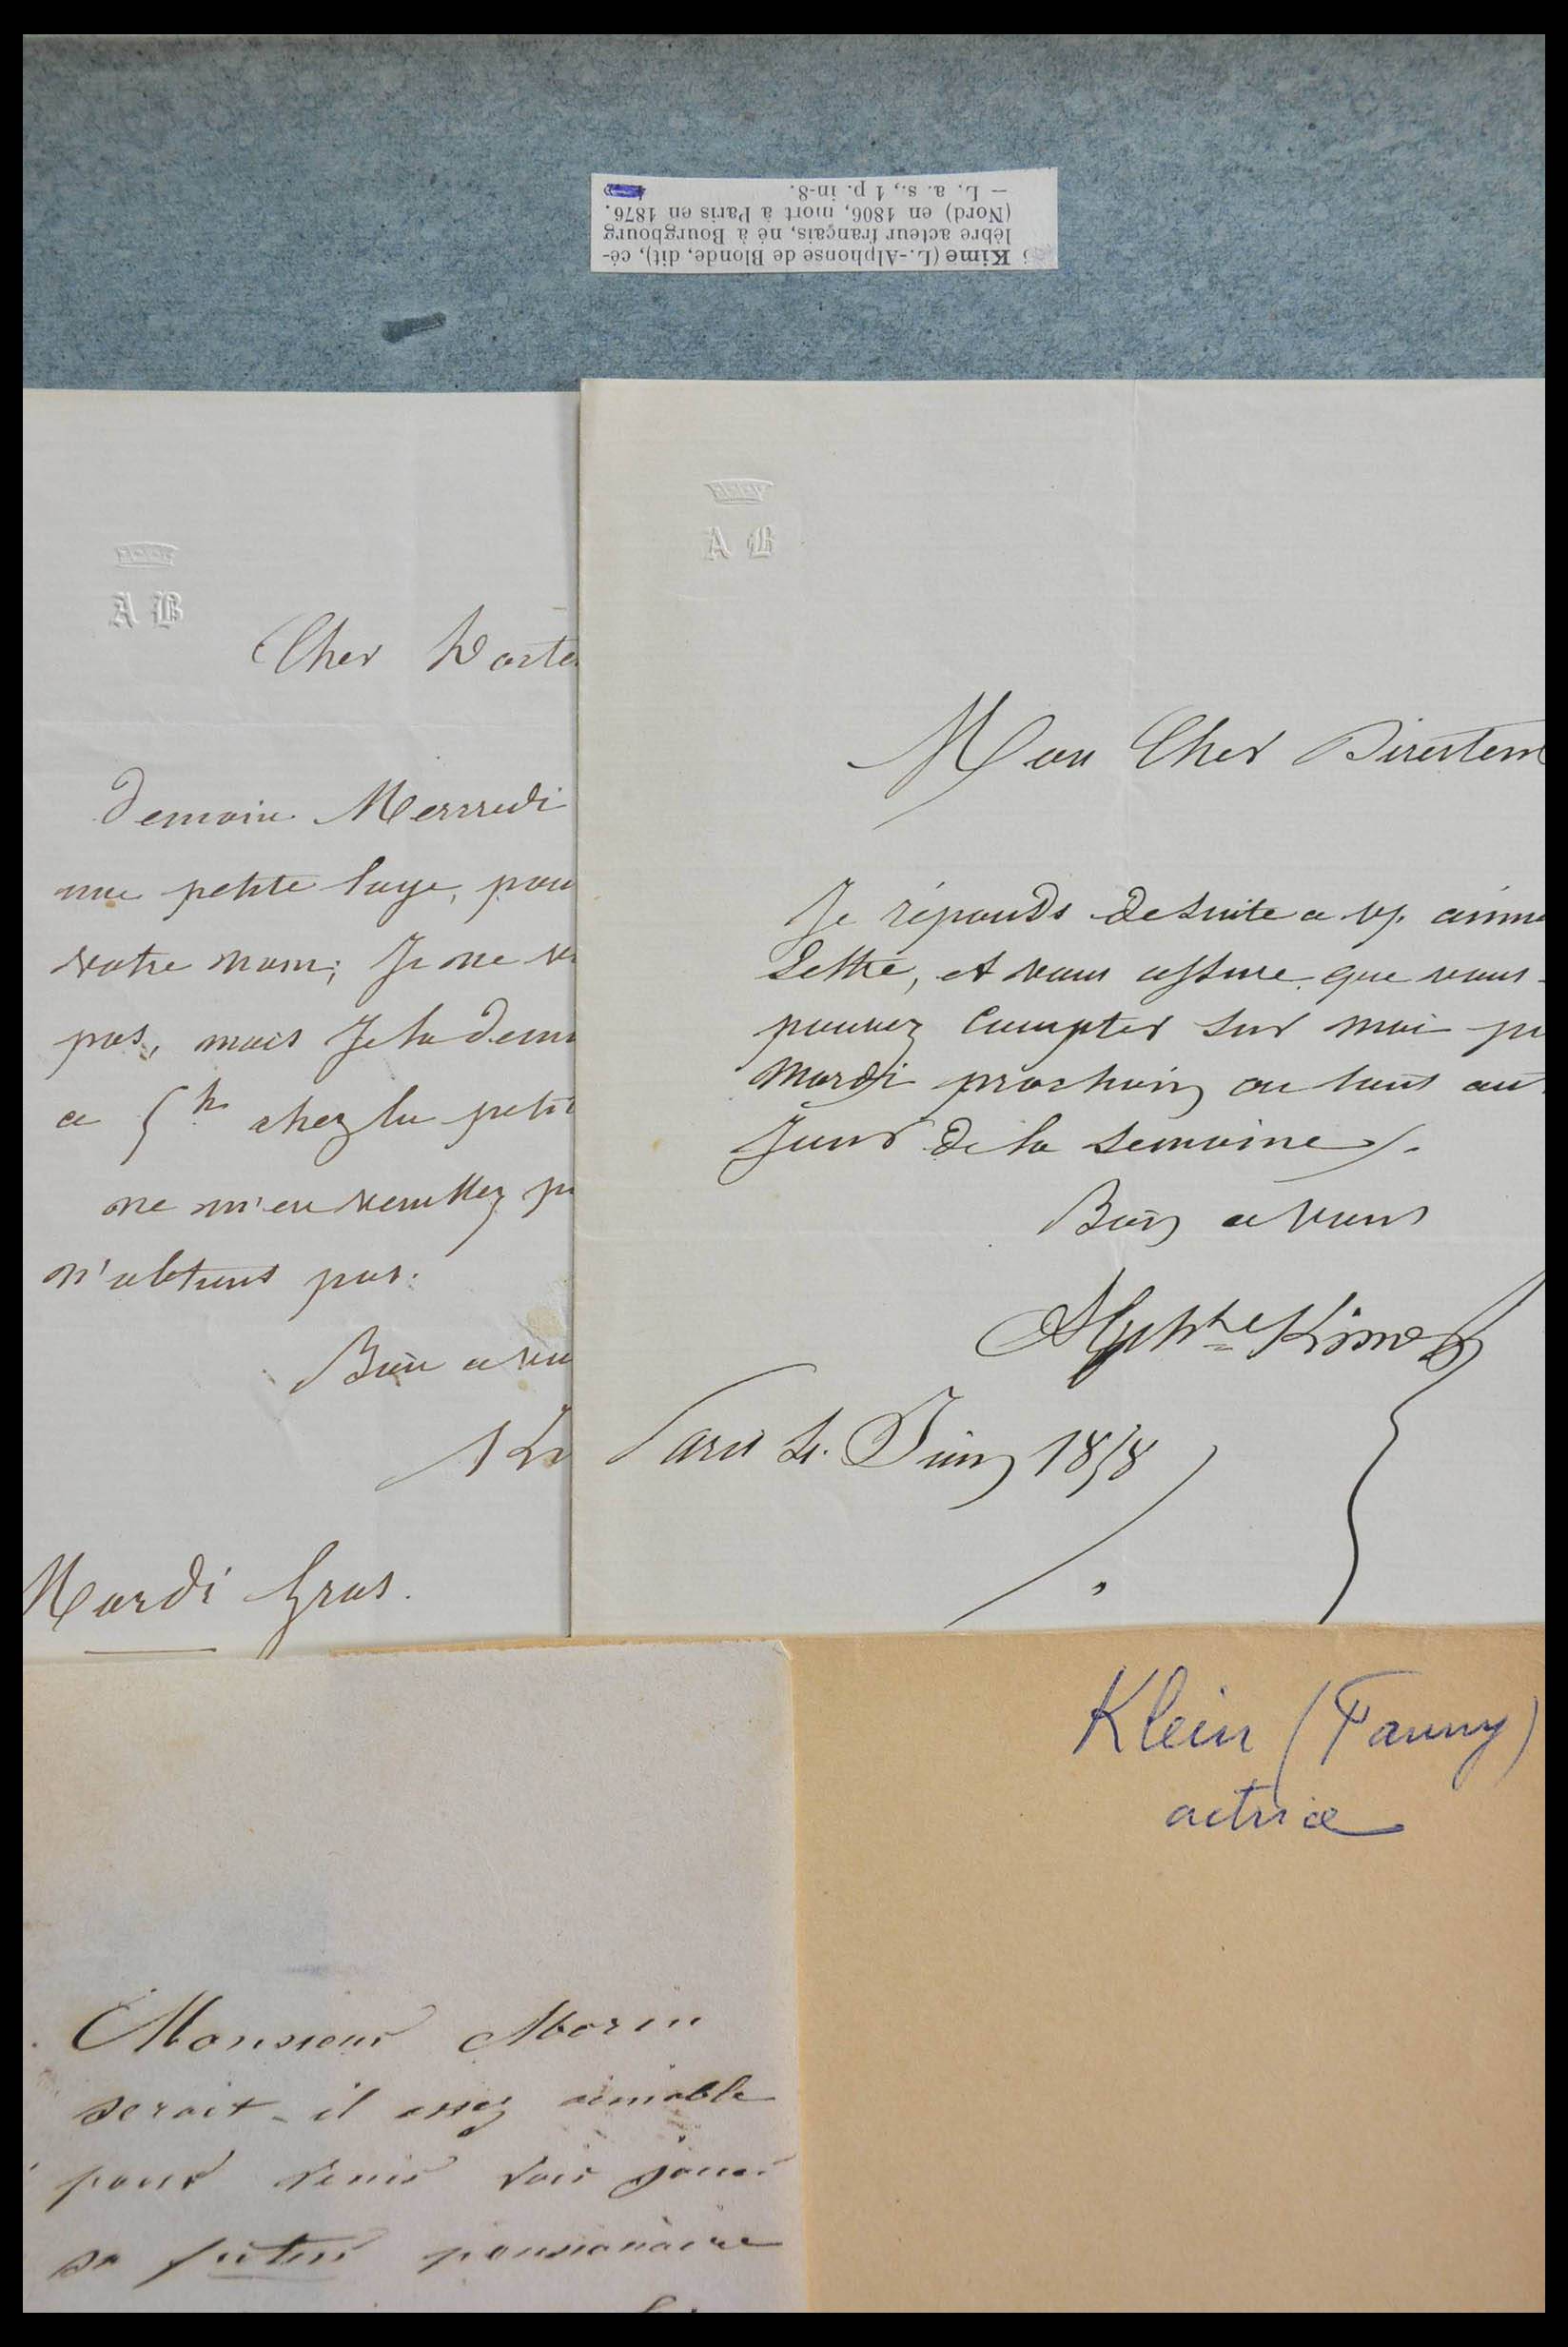 Kime (L.-Alphonse de Blonde, dit), cé-
lèbre acteur français, né à Bourgbourg
(Nord) en 1806, mort à Paris en 1876.
— L. a. s., 1 p. in-8.
A B
Cher Docte
Demain Mercredi
une petite loge, pour
votre nom; Je ne v
pas, mais Je la dem
a 5h chez la petit
ne m'en veuillez p
n'obtiens pas.
Bien a vou
Mardi Gras.
A B
Mon Cher Directeur
Je réponds desuite a v/. aima
Lettre, et vous assure que vous
pouvez compter sur moi po
Mardi prochain ou tout au
Jour de la semaine.
Bien a vous
Alphse Kime
Paris 4. Juin 1858
Klein (Fanny)
actrice
Monsieur Morin
serait-il assez aimable
pour venir voir jouer
sa future pensionnaire